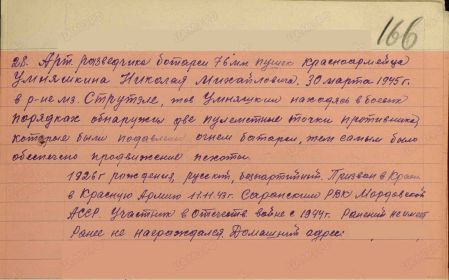 166
28. Арт. разведчика батареи 76 мм пушек красноармейца
Умняшкина Николая Михайловича. 30 марта 1945 г.
в р-не мз. Струтэле, тов Умняшкин находясь в боевых
порядках обнаружил две пулеметные точки противника,
которые были подавлены огнем батареи, тем самым было
обеспечено продвижение пехоты.
1926 г рождения, русский, беспартийный. Призван в
в Красную Армию 11.11.43 г. Саранским РВК Мордовской
АССР. Участник в Отечеств войне с 1944 г. Ранений не имеет
Ранее не награждался. Домашний адрес: